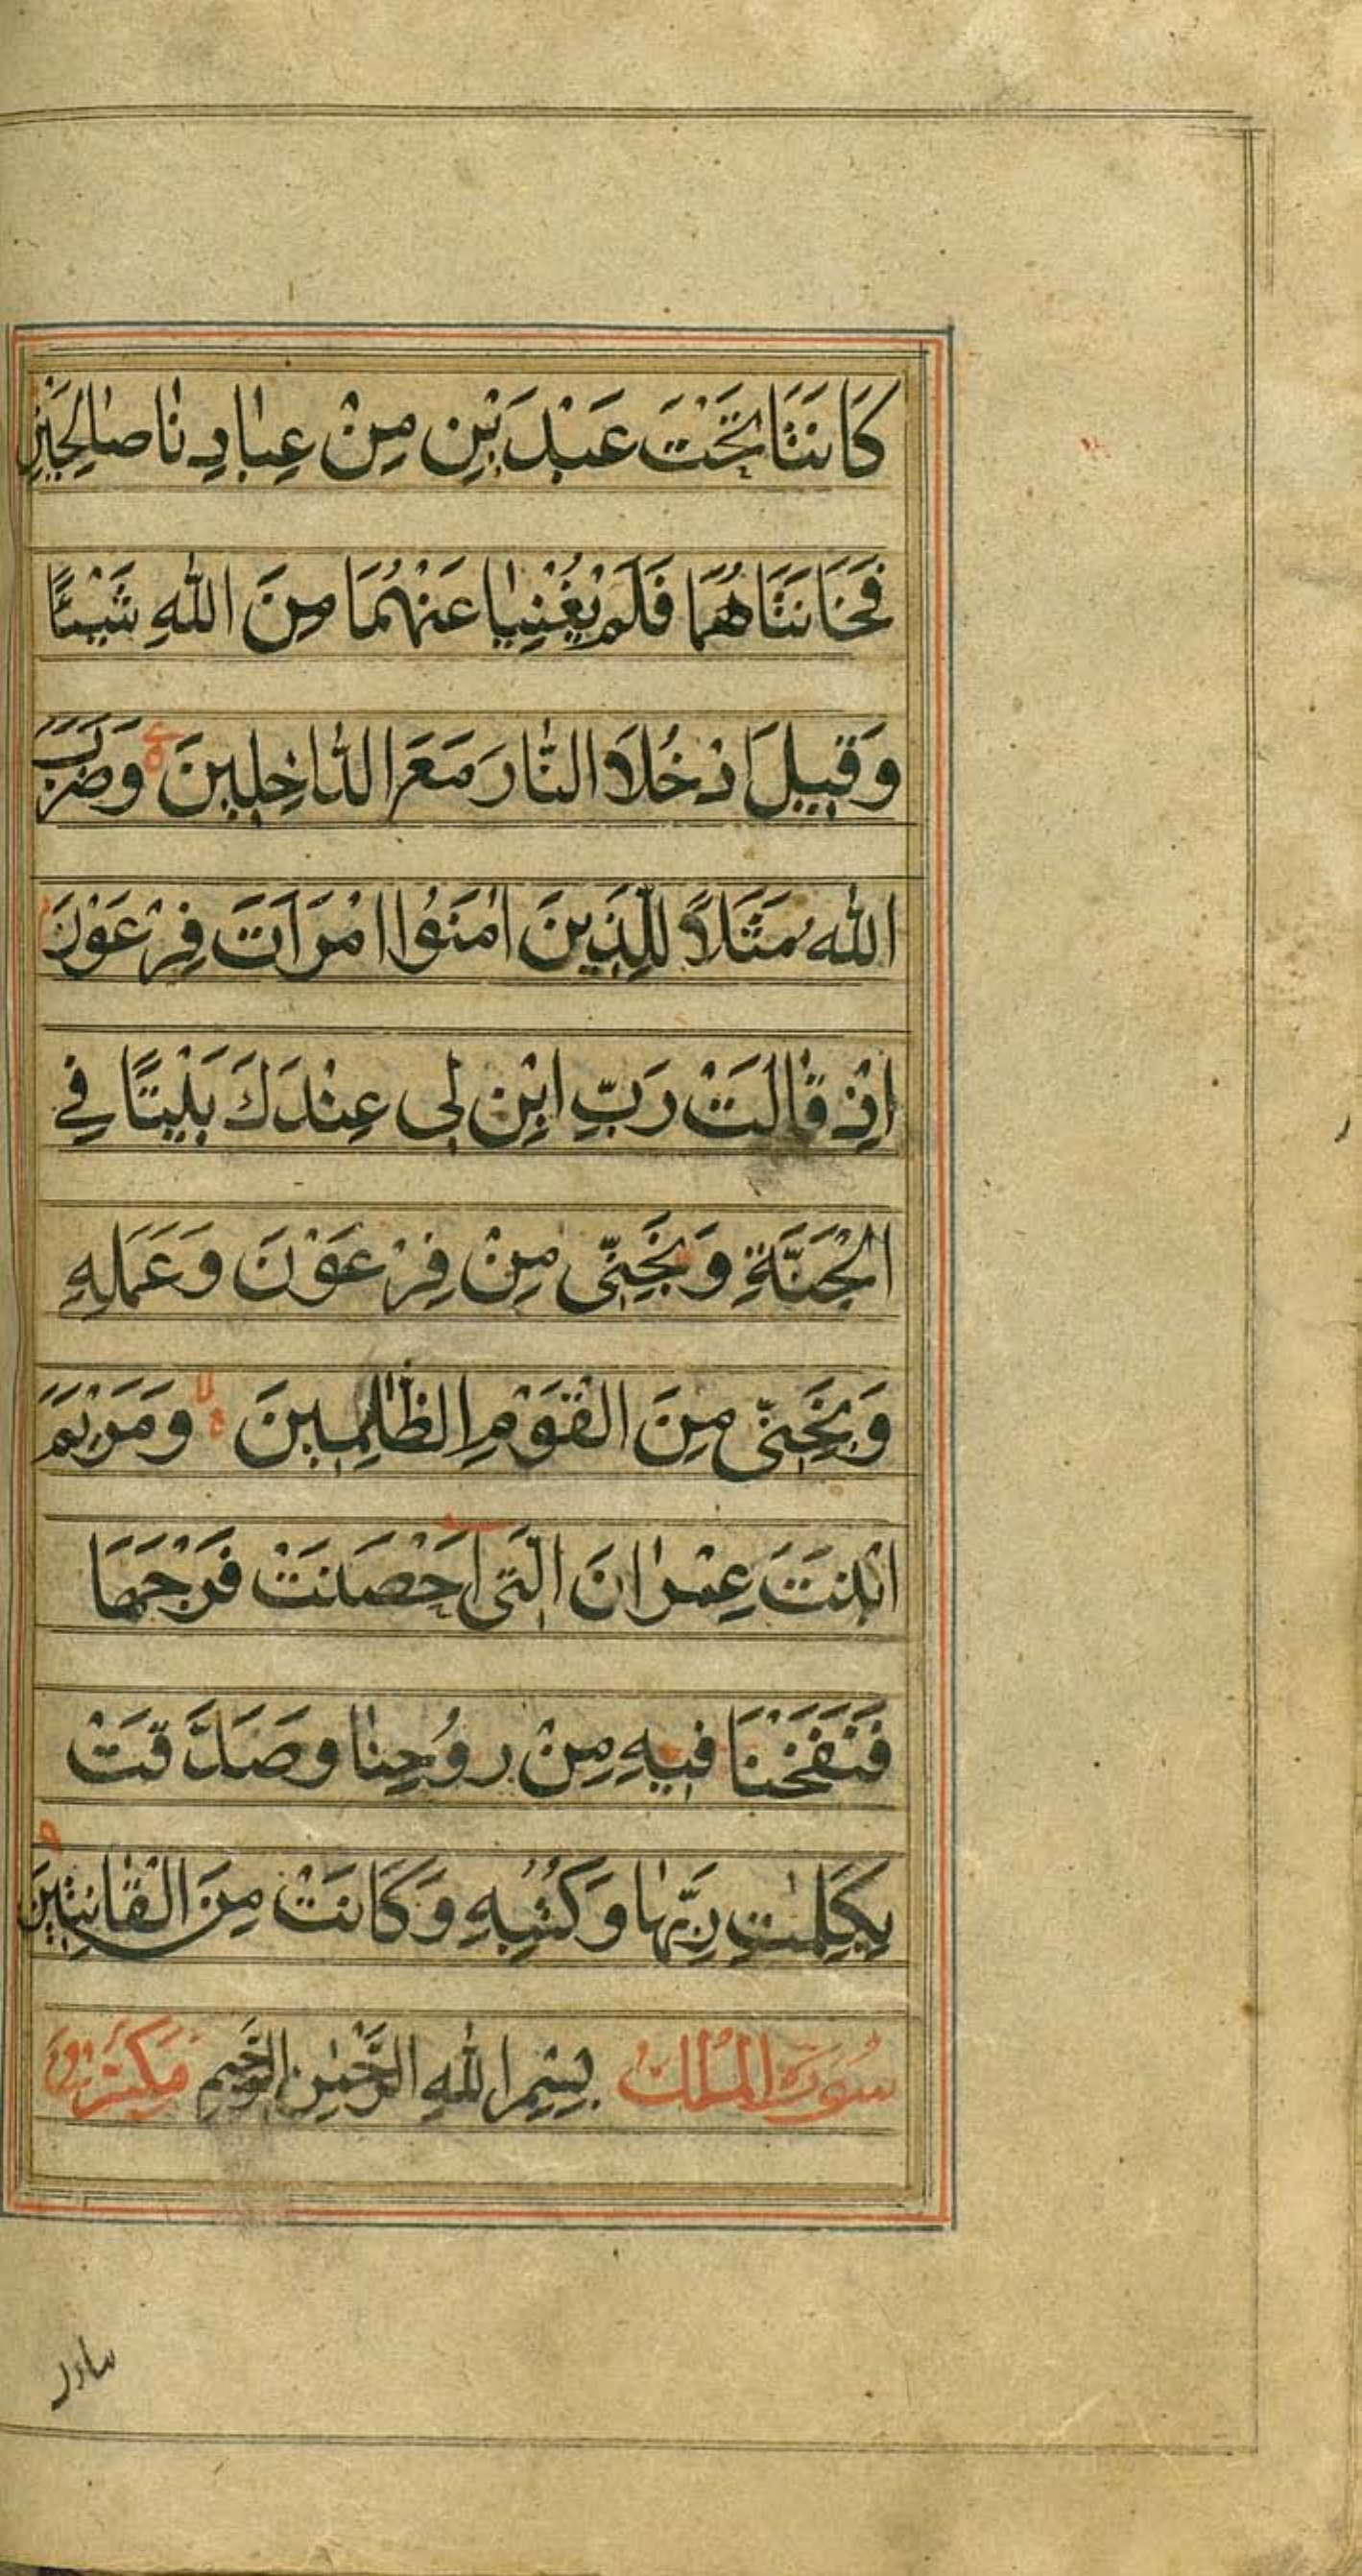 كَانَتَا تَحْتَ عَبْدَيْنِ مِنْ عِبٰادِنٰا صٰالِحَيْنِ
فَخَانَتَاهُمَا فَلَمْ يُغْنِيٰا عَنْهُمَا مِنَ اللّٰهِ شَيْـًٔا
وَقِيلَ ادْخُلَا النّٰارَ مَعَ الدّٰاخِلِينَ وَضَرَبَ
اللّٰهُ مَثَلًا لِلَّذِينَ اٰمَنُوا امْرَاَتَ فِرْعَوْنَ
اِذْ قٰالَتْ رَبِّ ابْنِ لِى عِنْدَكَ بَيْتًا فِى
الْجَنَّةِ وَنَجِّنِى مِنْ فِرْعَوْنَ وَعَمَلِهِ
وَنَجِّنِى مِنَ الْقَوْمِ الظّٰالِمِينَ وَمَرْيَمَ
ابْنَتَ عِمْرٰانَ الَّتِى اَحْصَنَتْ فَرْجَهَا
فَنَفَخْنَا فِيهِ مِنْ رُوحِنٰا وَصَدَّقَتْ
بِكَلِمٰتِ رَبِّهٰا وَكُتُبِهِ وَكَانَتْ مِنَ الْقٰانِتِينَ
سُورَة الْمُلْك بِسْمِ اللّٰهِ الرَّحْمٰنِ الرَّحِيمِ مَكِّيَّة